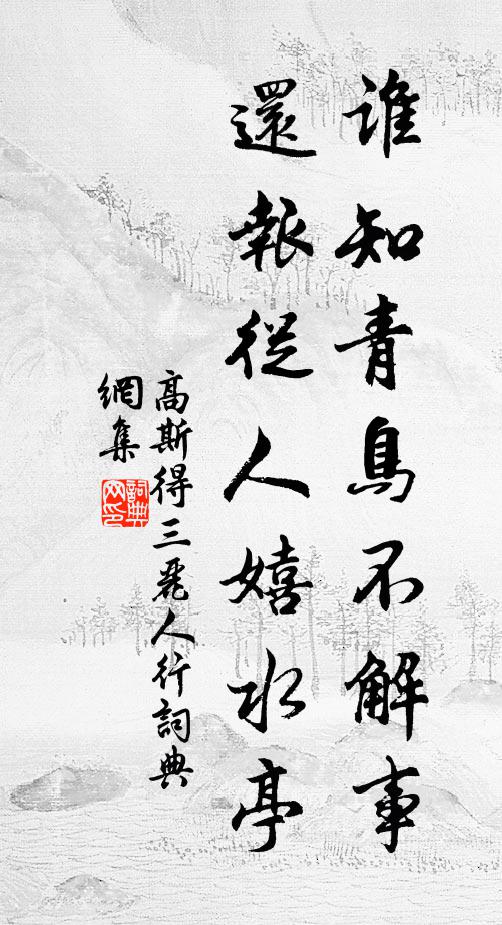 誰知青鳥不解事
還報從人嬉水亭
高斯得三麗人行詞典
網集
詞典
网印